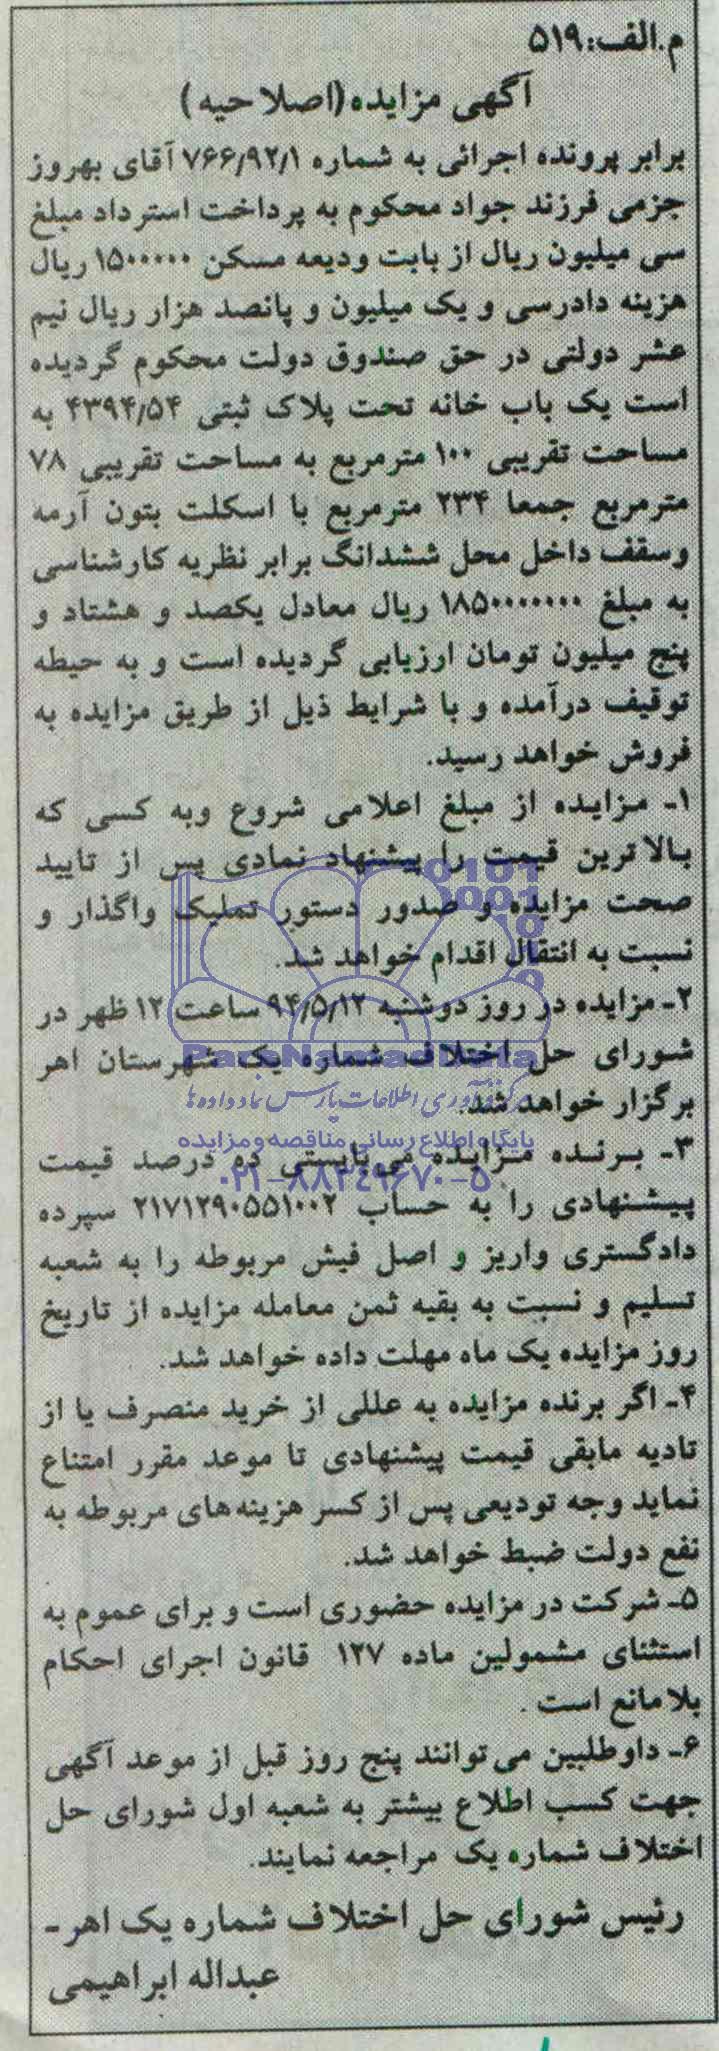 م.الف:۵۱۹
آگهی مزایده(اصلاحیه)
برابر پرونده اجرائی به شماره ۷۶۶/۹۲/۱ آقای بهروز
جزمی فرزند جواد محکوم به پرداخت استرداد مبلغ
سی میلیون ریال از بابت ودیعه مسکن ۱۵۰۰۰۰۰ ریال
هزینه دادرسی و یک میلیون و پانصد هزار ریال نیم
عشر دولتی در حق صندوق دولت محکوم گردیده
است یک باب خانه تحت پلاک ثبتی ۴۳۹۴/۵۴ به
مساحت تقریبی ۱۰۰ مترمربع به مساحت تقریبی ۷۸
مترمربع جمعا ۲۳۴ مترمربع با اسکلت بتون آرمه
وسقف داخل محل ششدانگ برابر نظریه کارشناسی
به مبلغ ۱۸۵۰۰۰۰۰۰۰ ریال معادل یکصد و هشتاد و
پنج میلیون تومان ارزیابی گردیده است و به حیطه
توقیف درآمده و با شرایط ذیل از طریق مزایده به
فروش خواهد رسید.
۱- مزایده از مبلغ اعلامی شروع وبه کسی که
بالاترین قیمت را پیشنهاد نمادی پس از تایید
صحت مزایده و صدور دستور تملیک واگذار و
نسبت به انتقال اقدام خواهد شد.
۲- مزایده در روز دوشنبه ۹۴/۵/۱۲ ساعت ۱۲ ظهر در
شورای حل اختلاف شماره یک شهرستان اهر
برگزار خواهد شد.
۳- برنده مزایده می‌بایستی ده درصد قیمت
پیشنهادی را به حساب ۲۱۷۱۲۹۰۵۵۱۰۰۲ سپرده
دادگستری واریز و اصل فیش مربوطه را به شعبه
تسلیم و نسبت به بقیه ثمن معامله مزایده از تاریخ
روز مزایده یک ماه مهلت داده خواهد شد.
۴- اگر برنده مزایده به عللی از خرید منصرف یا از
تادیه مابقی قیمت پیشنهادی تا موعد مقرر امتناع
نماید وجه تودیعی پس از کسر هزینه‌های مربوطه به
نفع دولت ضبط خواهد شد.
۵- شرکت در مزایده حضوری است و برای عموم به
استثنای مشمولین ماده ۱۲۷ قانون اجرای احکام
بلامانع است .
۶- داوطلبین می‌توانند پنج روز قبل از موعد آگهی
جهت کسب اطلاع بیشتر به شعبه اول شورای حل
اختلاف شماره یک مراجعه نمایند.
رئیس شورای حل اختلاف شماره یک اهر-
عبداله ابراهیمی
ParsNamadData
مرکز فرآوری اطلاعات پارس نماد داده ها
پایگاه اطلاع رسانی مناقصه و مزایده
۰۲۱-۸۸۳۴۹۶۷۰-۵